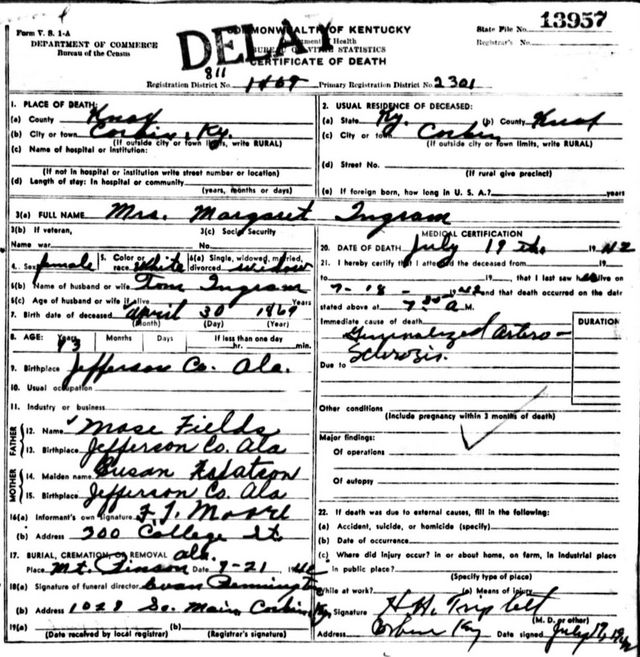 Form V. S. 1-A
DEPARTMENT OF COMMERCE
Bureau of the Census
DELAY
COMMONWEALTH OF KENTUCKY
Department of Health
BUREAU OF VITAL STATISTICS
CERTIFICATE OF DEATH
State File No. 13957
Registrar's No.
811
Registration District No. Primary Registration District No. 2301
1. PLACE OF DEATH:
(a) County Knox
(b) City or town Corbin, Ky.
(If outside city or town limits, write RURAL)
(c) Name of hospital or institution:
(If not in hospital or institution write street number or location)
(d) Length of stay: In hospital or community
(years, months or days)
2. USUAL RESIDENCE OF DECEASED:
(a) State Ky. (b) County Knox
(c) City or town Corbin
(If outside city or town limits, write RURAL)
(d) Street No.
(If rural give precinct)
(e) If foreign born, how long in U. S. A.? years
3(a) FULL NAME Mrs. Margaret Ingram
3(b) If veteran,
Name war
3(c) Social Security
No.
4. Sex female 5. Color or race white 6(a) Single, widowed, married, divorced widow
6(b) Name of husband or wife Tom Ingram
6(c) Age of husband or wife if alive Years
7. Birth date of deceased April 30 1869
(Month) (Day) (Year)
8. AGE: Years 73 Months Days If less than one day
hr. min.
9. Birthplace Jefferson Co. Ala.
10. Usual occupation
11. Industry or business
FATHER
12. Name Mose Fields
13. Birthplace Jefferson Co. Ala
MOTHER
14. Maiden name Susan
15. Birthplace Jefferson Co. Ala
16(a) Informant's own signature F. J. Moore
(b) Address 200 College St
17. BURIAL, CREMATION, OR REMOVAL Ala.
Place Mt. Pinson Date 7-21, 1942
18(a) Signature of funeral director Evan Pennington
(b) Address 1028 So. Main Corbin Ky.
19(a) (b)
(Date received by local registrar) (Registrar's signature)
MEDICAL CERTIFICATION
20. DATE OF DEATH July 19th, 1942
21. I hereby certify that I attended the deceased from 19
to 19, that I last saw h alive on
7-18-1942 and that death occurred on the date
stated above at 7: A.M.
Immediate cause of death
Generalized Artero-
Sclerozis.
Due to
DURATION
Other conditions
(Include pregnancy within 3 months of death)
Major findings:
Of operations
Of autopsy
22. If death was due to external causes, fill in the following:
(a) Accident, suicide, or homicide (specify)
(b) Date of occurrence
(c) Where did injury occur? in or about home, on farm, in industrial place
in public place?
(Specify type of place)
While at work? (e) Means of injury
Signature H. H. Triplett
(M. D. or other)
Address Corbin Ky Date signed July 19, 1942